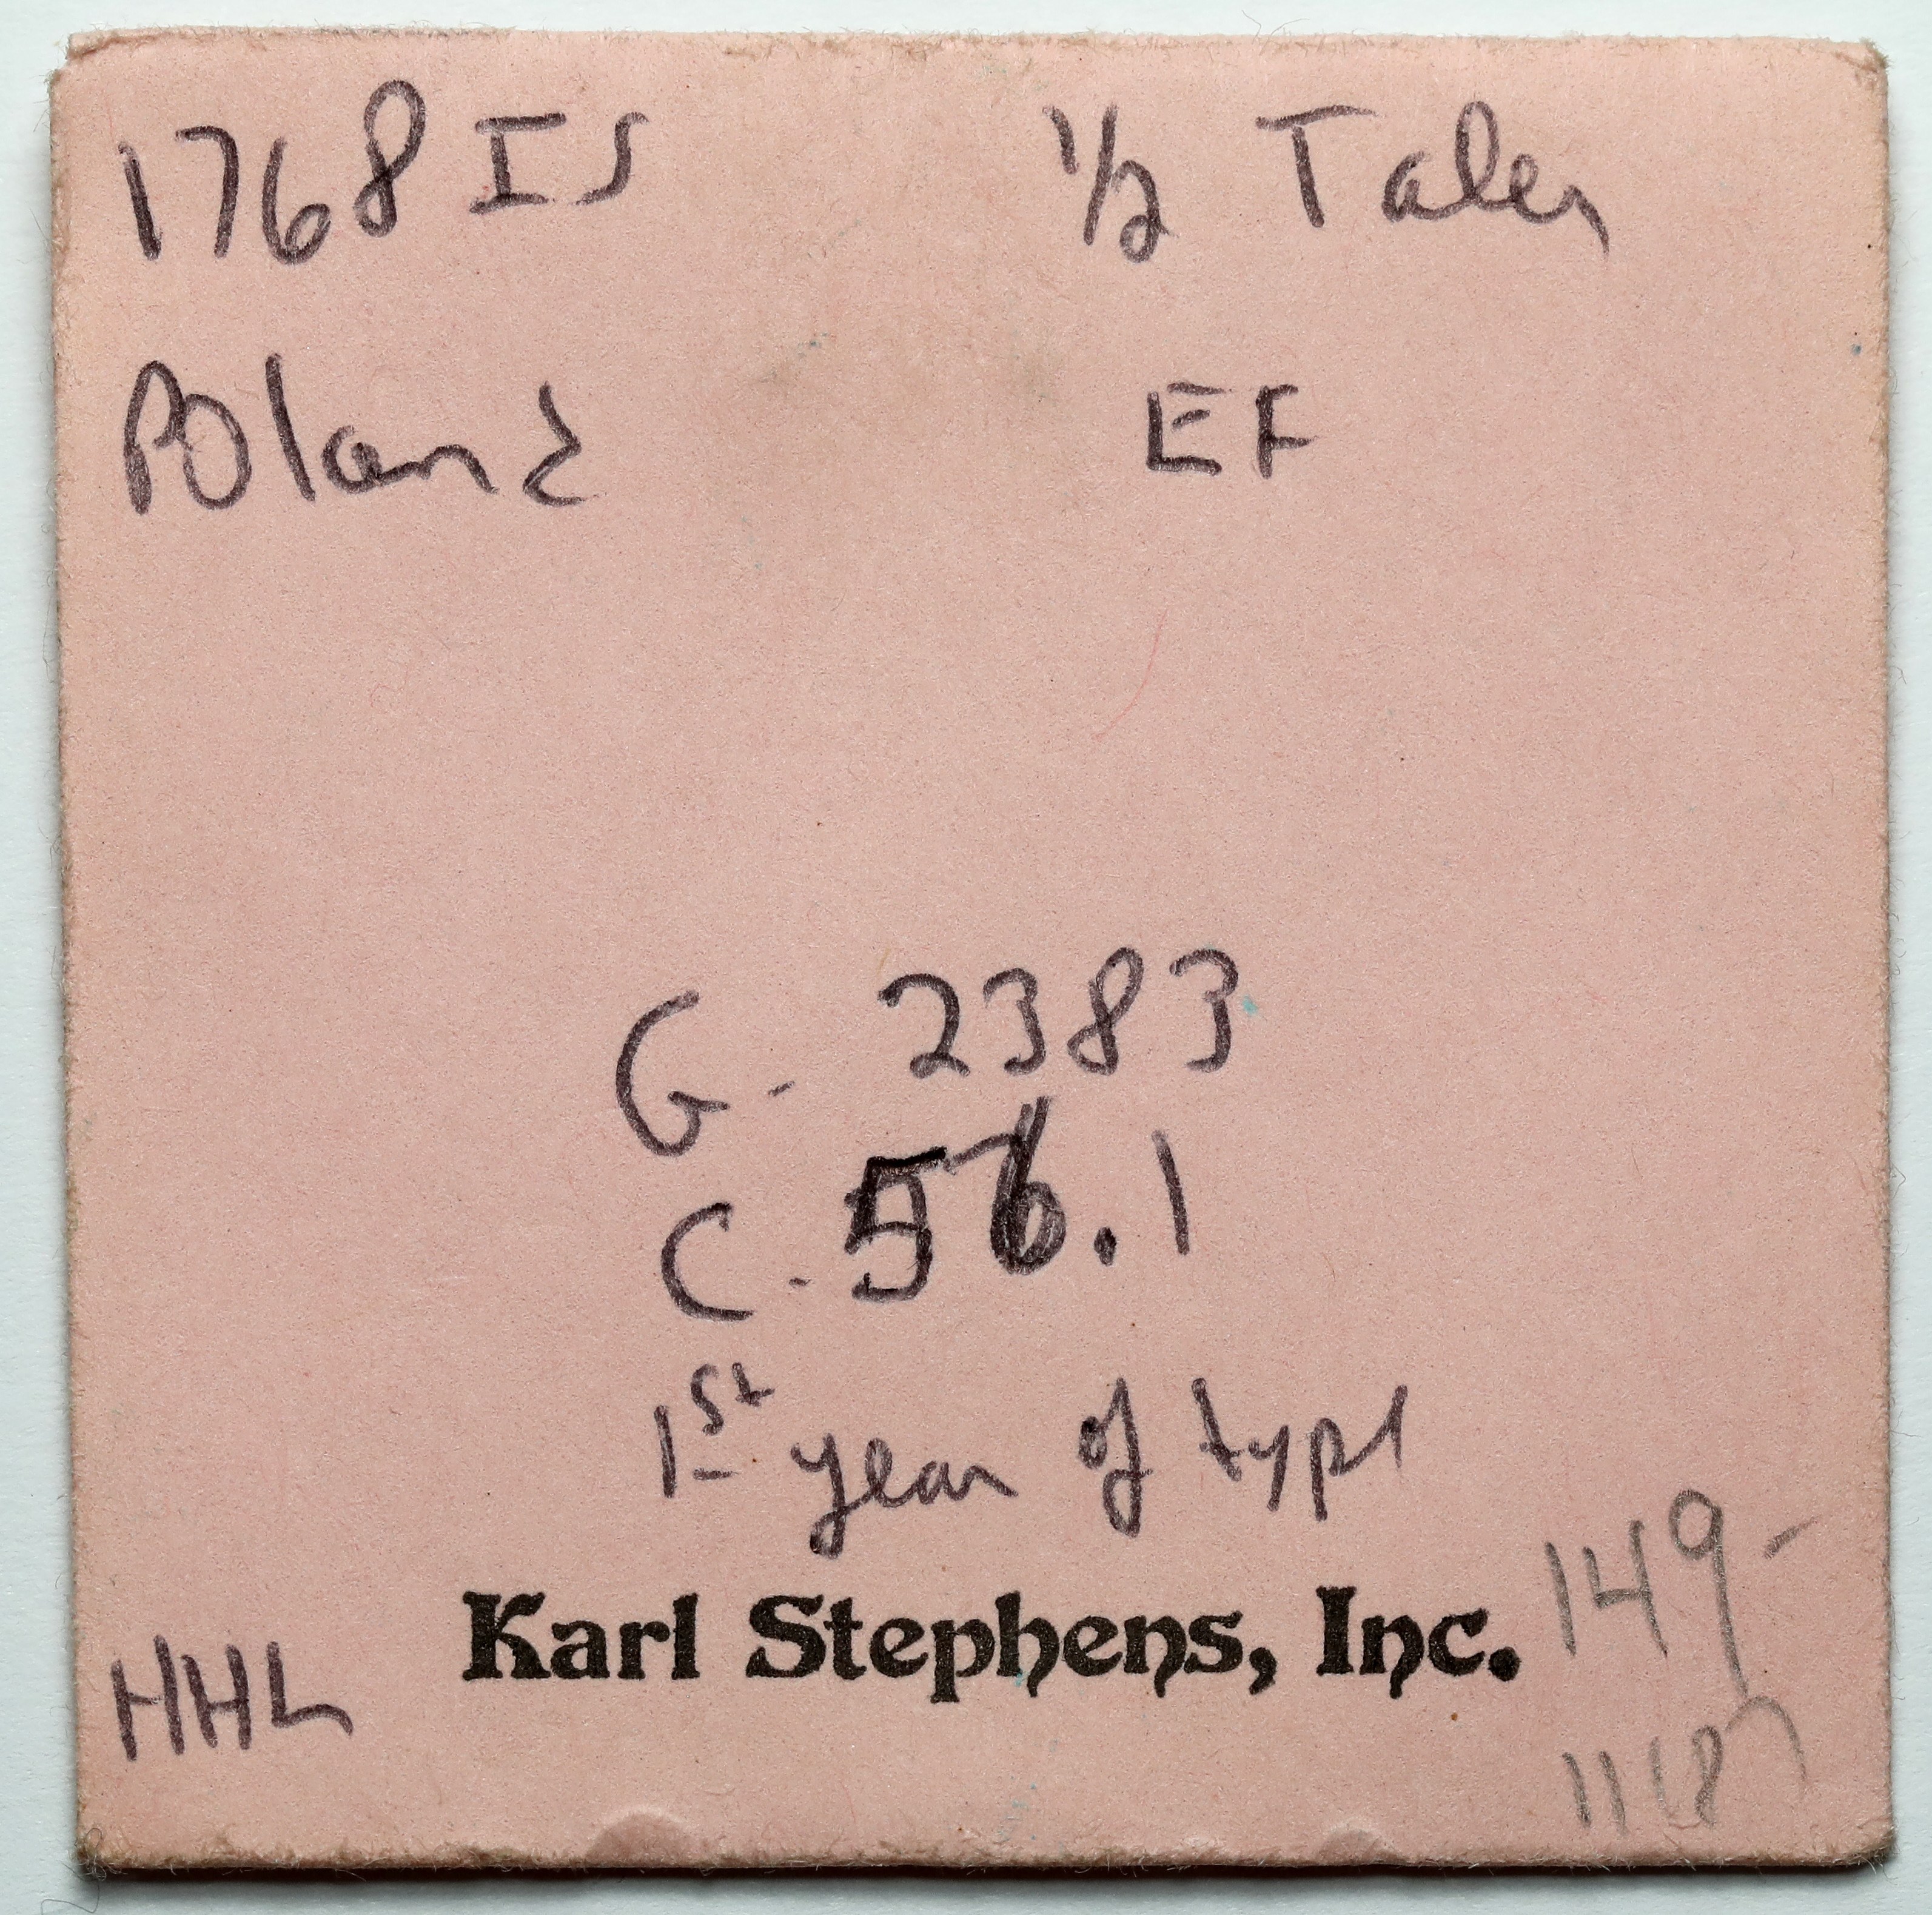 1768 IS 1/2 Taler
Poland EF
G - 2383
C - 56.1
1st year of type
Karl Stephens, Inc. 149-
HHL 11/87